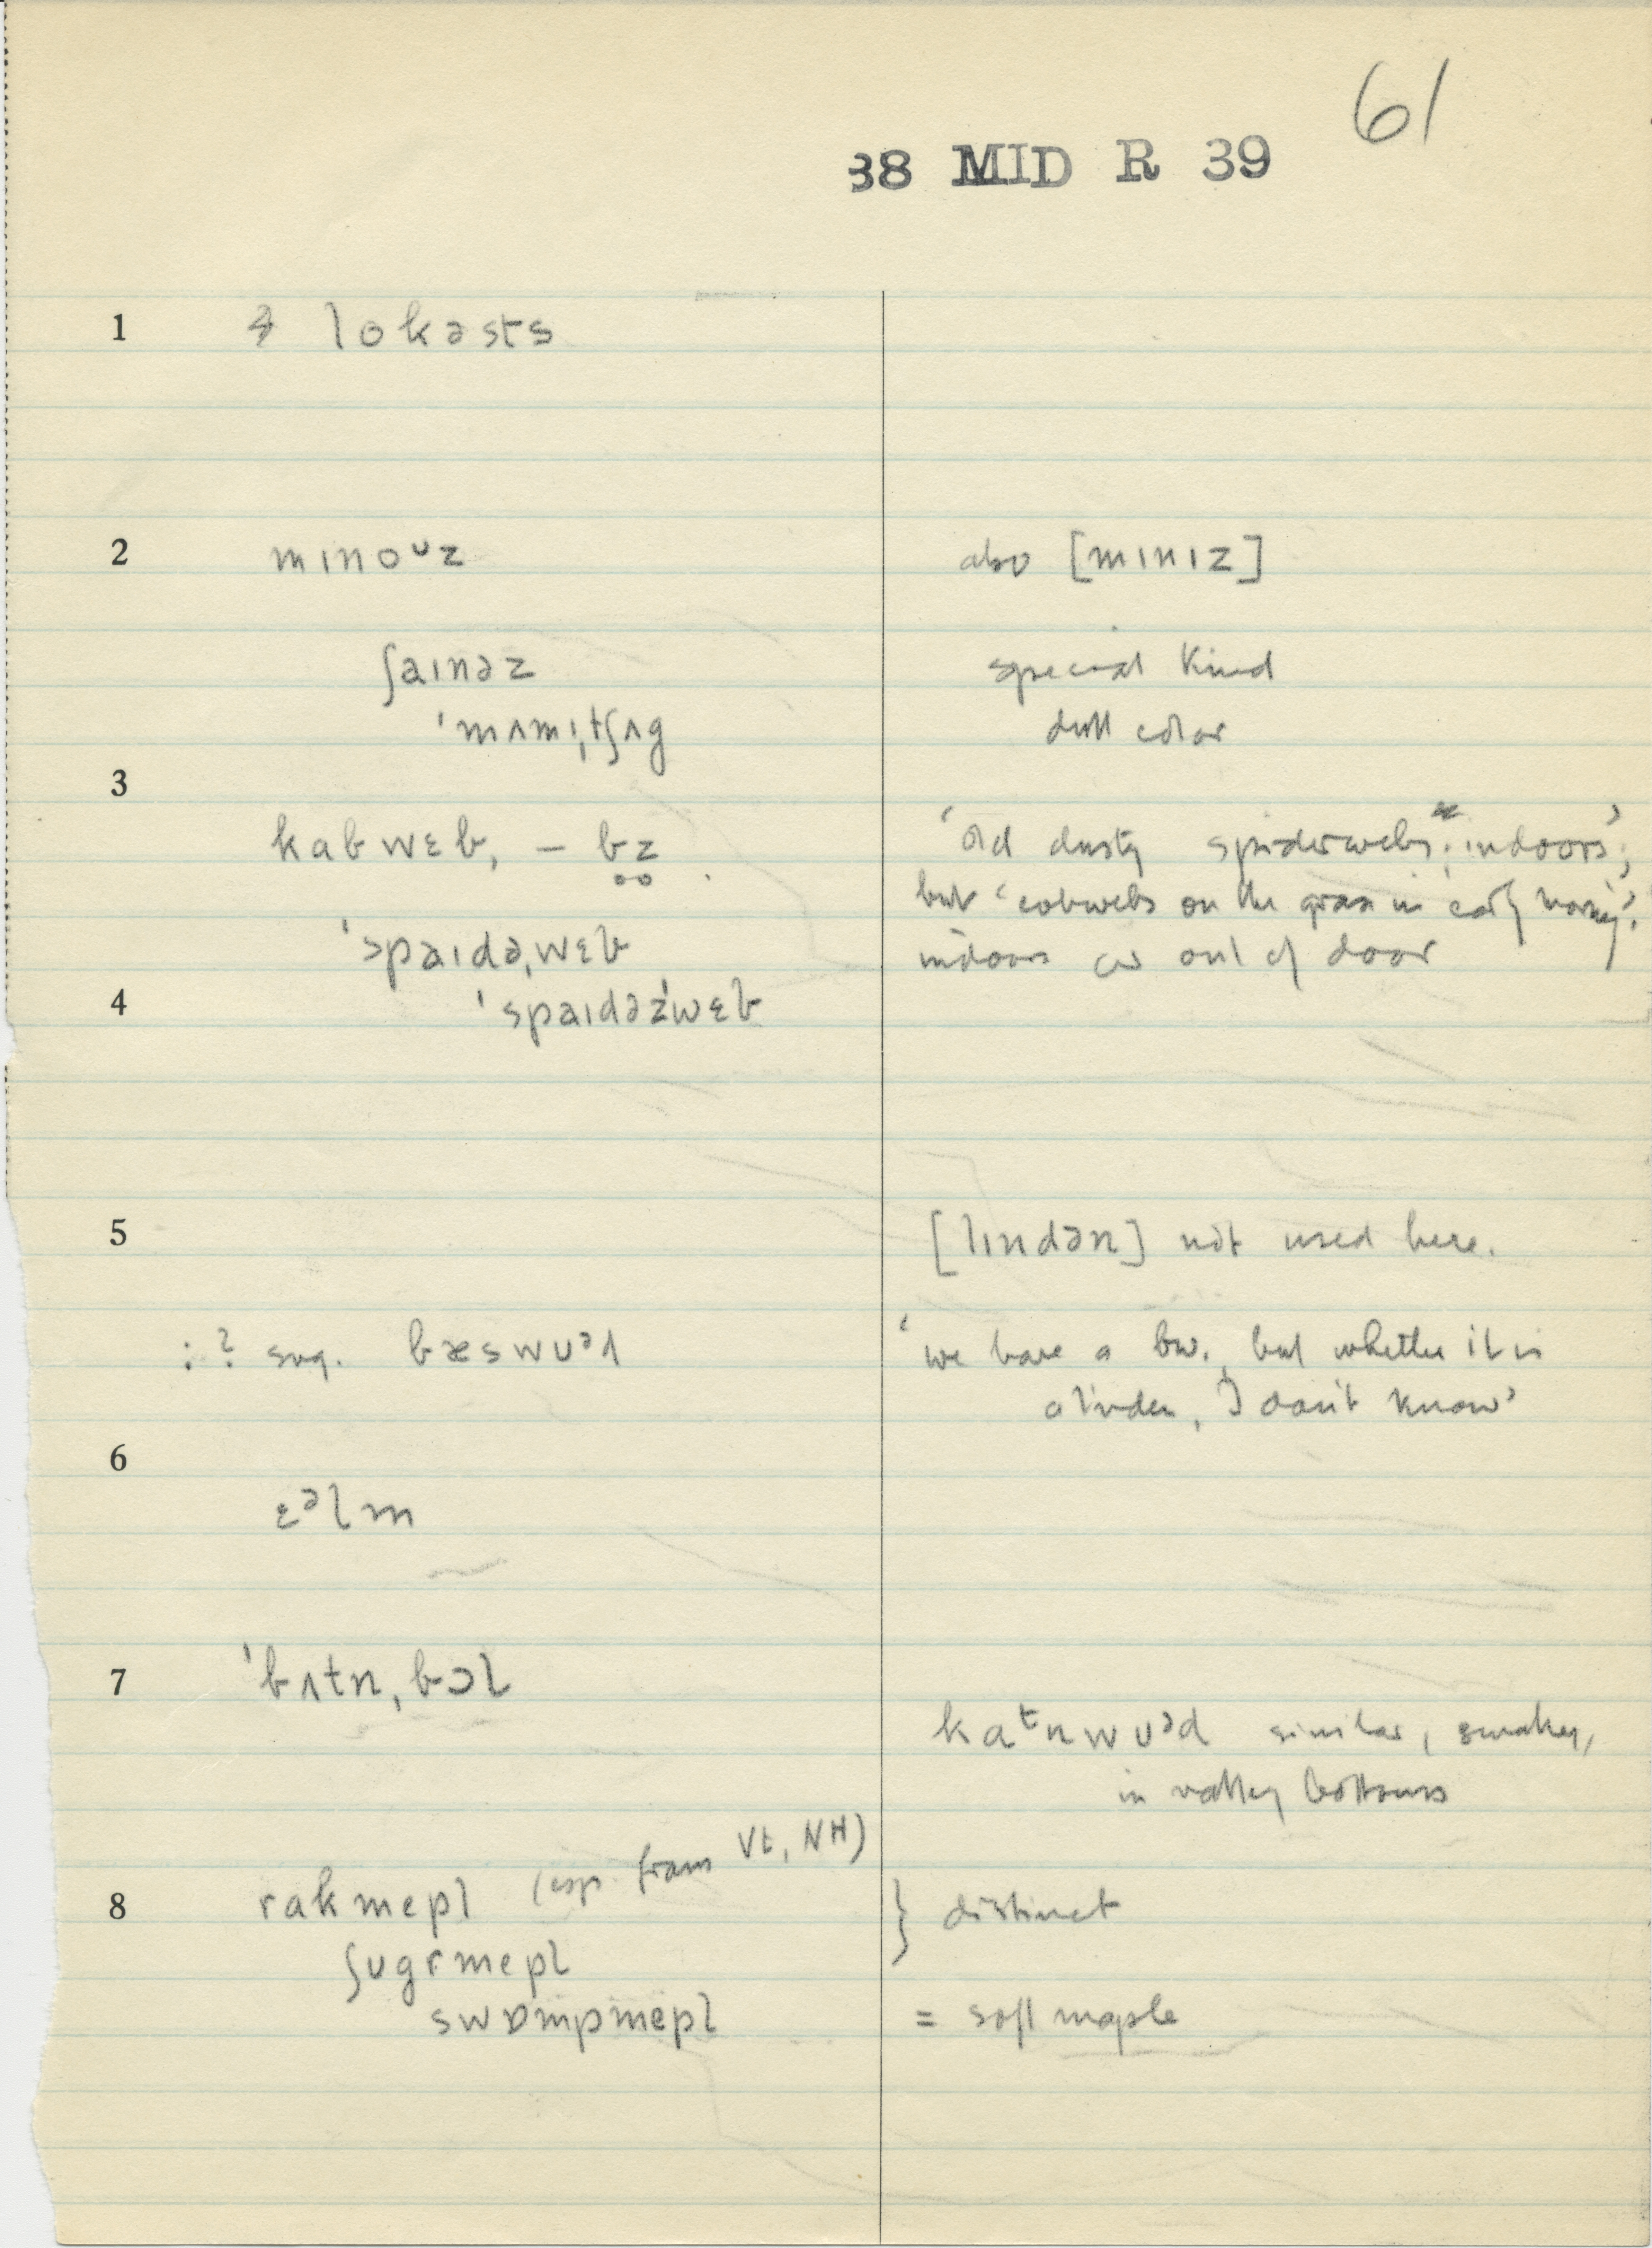 61
38 MID R 39
1 lokəsts
2 mɪnoᶷz also [mɪnɪz]
ʃaɪnəz special kind
ˈmʌmɪˌtʃʌg dull color
3
kabwɛb, – bz̥ 'old dusty spiderwebs indoors';
but 'cobwebs on the grass in early morning'.
ˈspaɪdəˌwɛb indoors or out of door
4 ˈspaɪdəzˈwɛb
5 [lɪndən] not used here.
:? sug. bæswᴜᵊd 'we have a bw., but whether it is
a linden, I don't know'
6
ɛᵊlm
7 ˈbʌtn̩ˌbɔl
kaᵗnwᴜᵊd similar, smaller,
in valley bottoms
(esp. from Vt, NH)
8 rakmepl } distinct
ʃᴜgrmepl
swɒmpmepl = soft maple